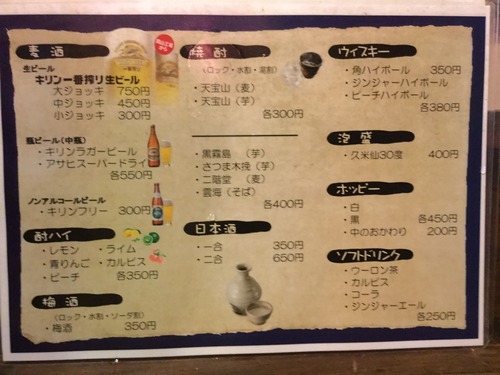 麦酒
生ビール
キリン一番搾り生ビール
大ジョッキ 750円
中ジョッキ 450円
小ジョッキ 300円
瓶ビール(中瓶)
・キリンラガービール
・アサヒスーパードライ
各550円
ノンアルコールビール
・キリンフリー 300円
酎ハイ
・レモン ・ライム
・青りんご ・カルピス
・ピーチ 各350円
梅酒
(ロック・水割・ソーダ割)
・梅酒 350円
焼酎
(ロック・水割・湯割)
・天宝山(麦)
・天宝山(芋)
各300円
・黒霧島 (芋)
・さつま木挽(芋)
・二階堂 (麦)
・雲海(そば)
各400円
日本酒
・一合 350円
・二合 650円
ウィスキー
・角ハイボール 350円
・ジンジャーハイボール
・ピーチハイボール
各380円
泡盛
・久米仙30度 400円
ホッピー
・白
・黒 各450円
・中のおかわり 200円
ソフトドリンク
・ウーロン茶
・カルピス
・コーラ
・ジンジャーエール
各250円